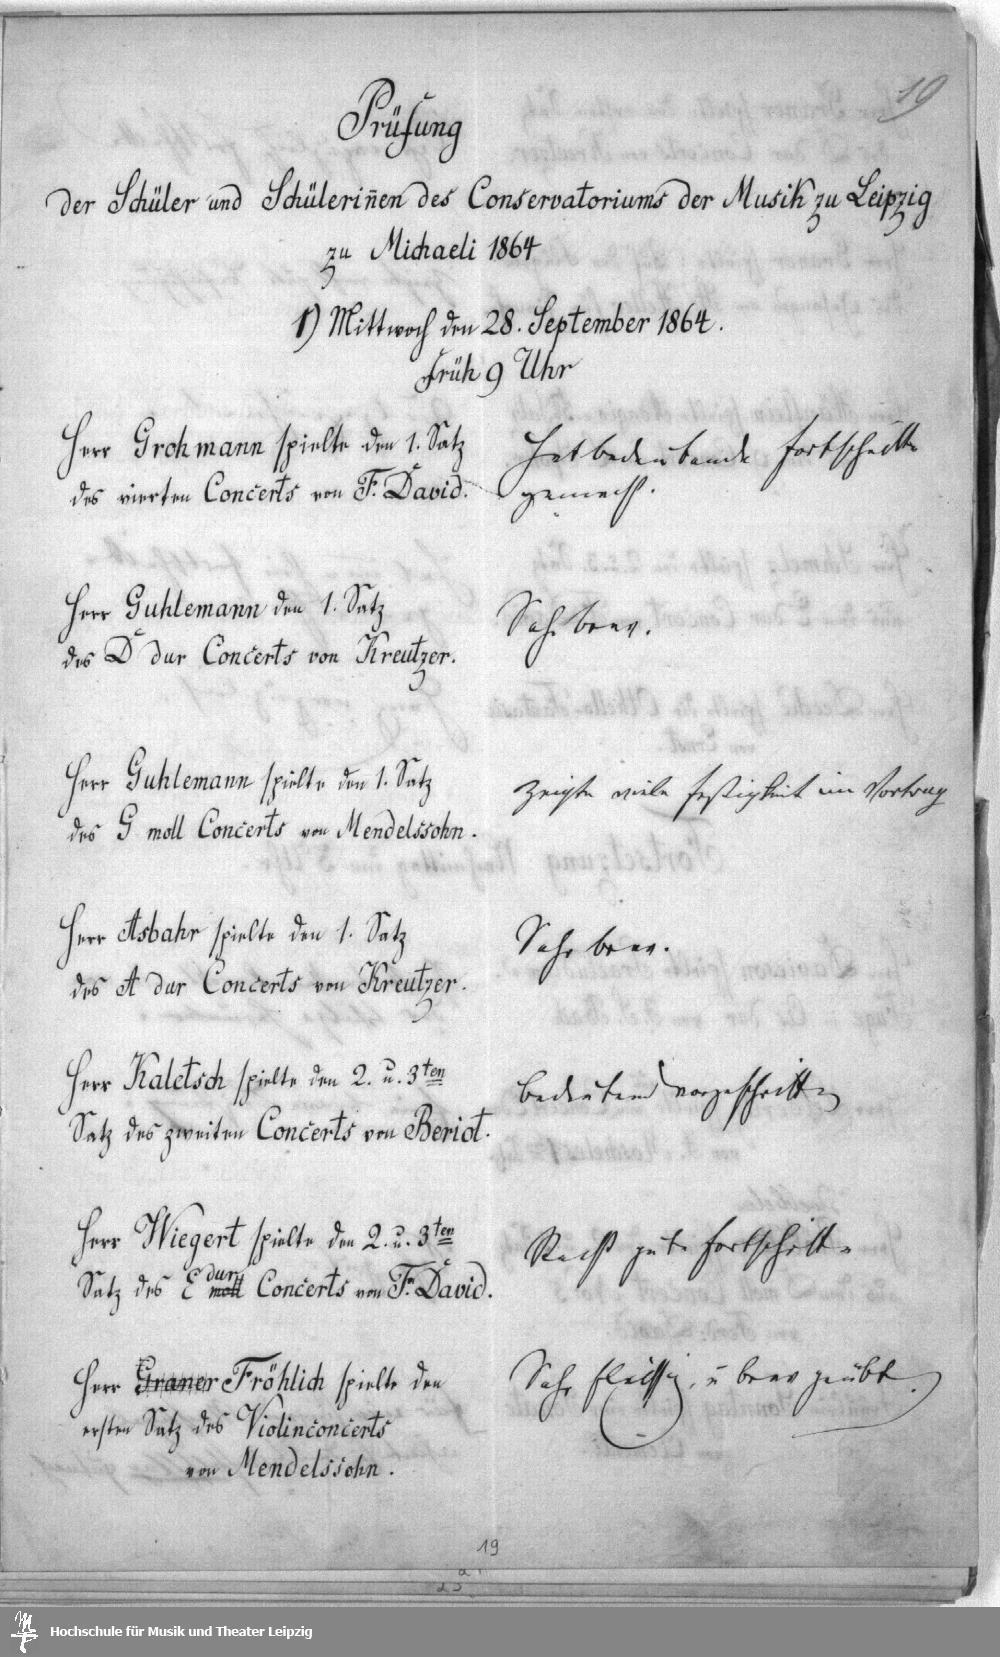 19
Prüfung
der Schüler und Schülerin̄en des Conservatoriums der Musik zu Leipzig
zu Michaeli 1864
1) Mittwoch den 28. September 1864.
Früh 9 Uhr
Herr Grohmann spielte den 1. Satz
des vierten Concerts von F. David.
Hat bedeutende Fortschritte
gemacht.
Herr Guhlemann den 1. Satz
des D dur Concerts von Kreutzer.
Sehr brav.
Herr Guhlemann spielte den 1. Satz
des G moll Concerts von Mendelssohn.
Zeigte viele Festigkeit im Vortrag
Herr Asbahr spielte den 1. Satz
des A dur Concerts von Kreutzer.
Sehr brav.
Herr Kaletsch spielte den 2. u. 3ten
Satz des zweiten Concerts von Beriot.
bedeutend vorgeschritten
Herr Wiegert spielte den 2. u. 3ten
Satz des E dur moll Concerts von F. David.
Recht gute Fortschritte
Herr Graner Fröhlich spielte den
ersten Satz des Violinconcerts
von Mendelssohn.
Sehr fleissig, u brav geübt.
19
Hochschule für Musik und Theater Leipzig